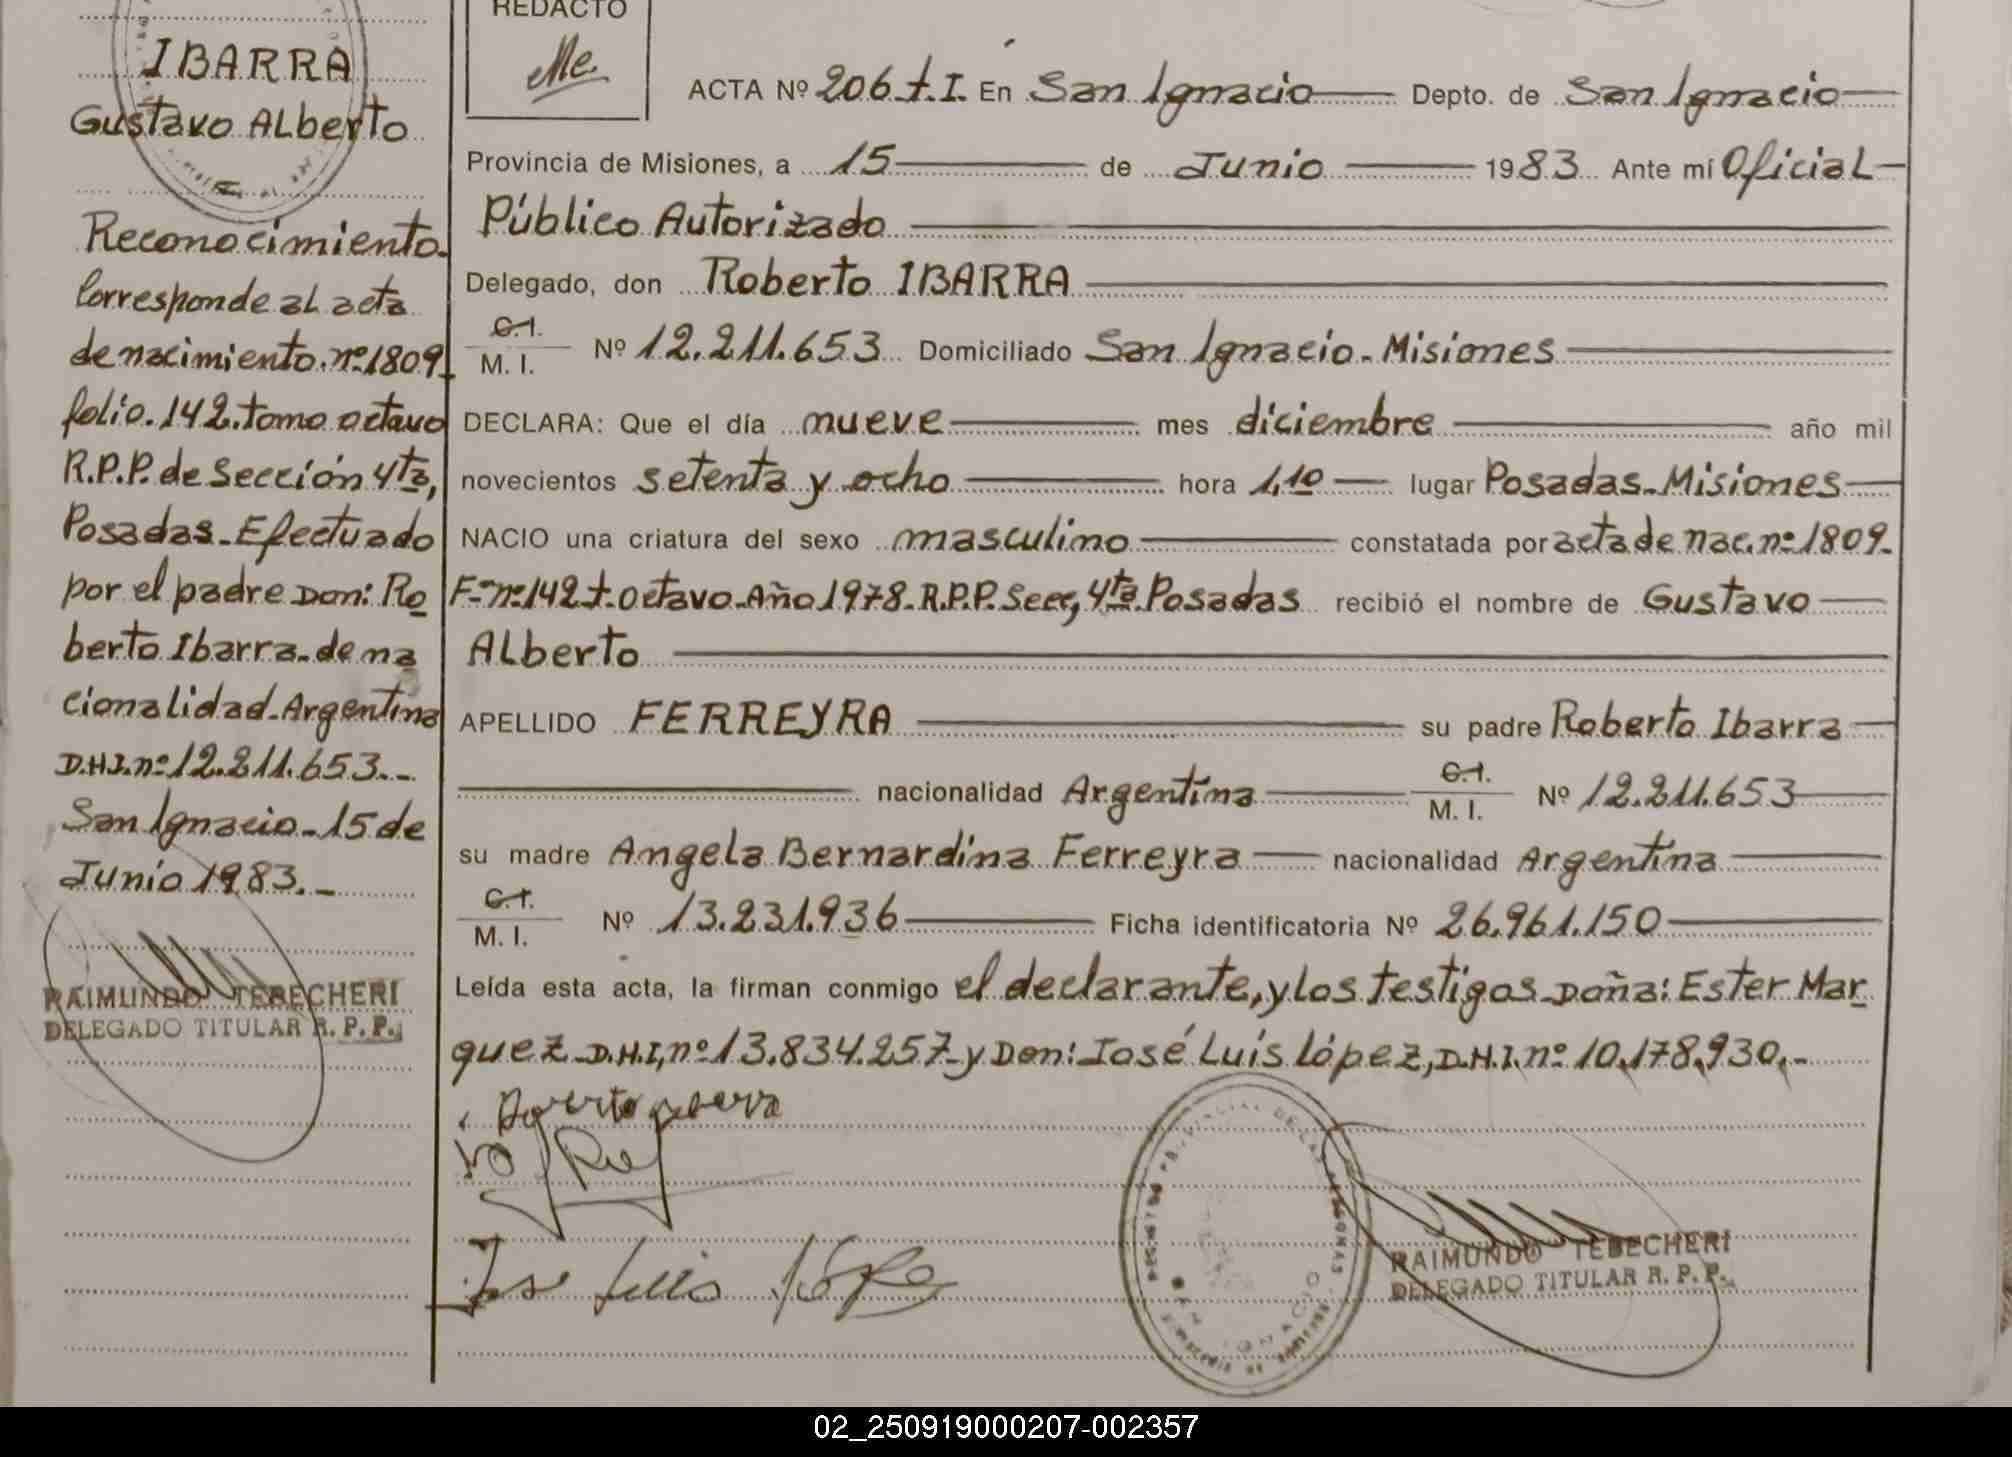 IBARRA
Gustavo Alberto
Reconocimiento.
Corresponde al acta
de nacimiento.nº1809
folio.142.tomo octavo
R.P.P. de Sección 4ta,
Posadas-Efectuado
por el padre Don: Ro
berto Ibarra-de na
cionalidad-Argentina
D.N.I.nº12.211.653.-
San Ignacio-15 de
Junio 1983.-
RAIMUNDO TEBECHERI
DELEGADO TITULAR R. P. P.
REDACTO
ACTA Nº 206 t.I. En San Ignacio Depto. de San Ignacio
Provincia de Misiones, a 15 de Junio 1983 Ante mí Oficial
Público Autorizado
Delegado, don Roberto IBARRA
C.I.
M. I. Nº 12.211.653 Domiciliado San Ignacio-Misiones
DECLARA: Que el día nueve mes diciembre año mil
novecientos setenta y ocho hora 1,10 lugar Posadas-Misiones
NACIO una criatura del sexo masculino constatada por acta de nac.nº1809-
Fº nº142 t.octavo-Año 1978-R.P.P. Secc, 4ta Posadas recibió el nombre de Gustavo
Alberto
APELLIDO FERREYRA su padre Roberto Ibarra
nacionalidad Argentina C.I. M. I. Nº 12.211.653
su madre Angela Bernardina Ferreyra nacionalidad Argentina
C.I.
M. I. Nº 13.231.936 Ficha identificatoria Nº 26.961.150
Leída esta acta, la firman conmigo el declarante, y los testigos Doña: Ester Mar
quez-D.N.I,nº13.834.257-y Don: José Luis López, D.N.I.nº 10.178.930,-
Roberto Ibarra
Jose Luis López
SAN IGNACIO
RAIMUNDO TEBECHERI
DELEGADO TITULAR R. P. P.
02_250919000207-002357